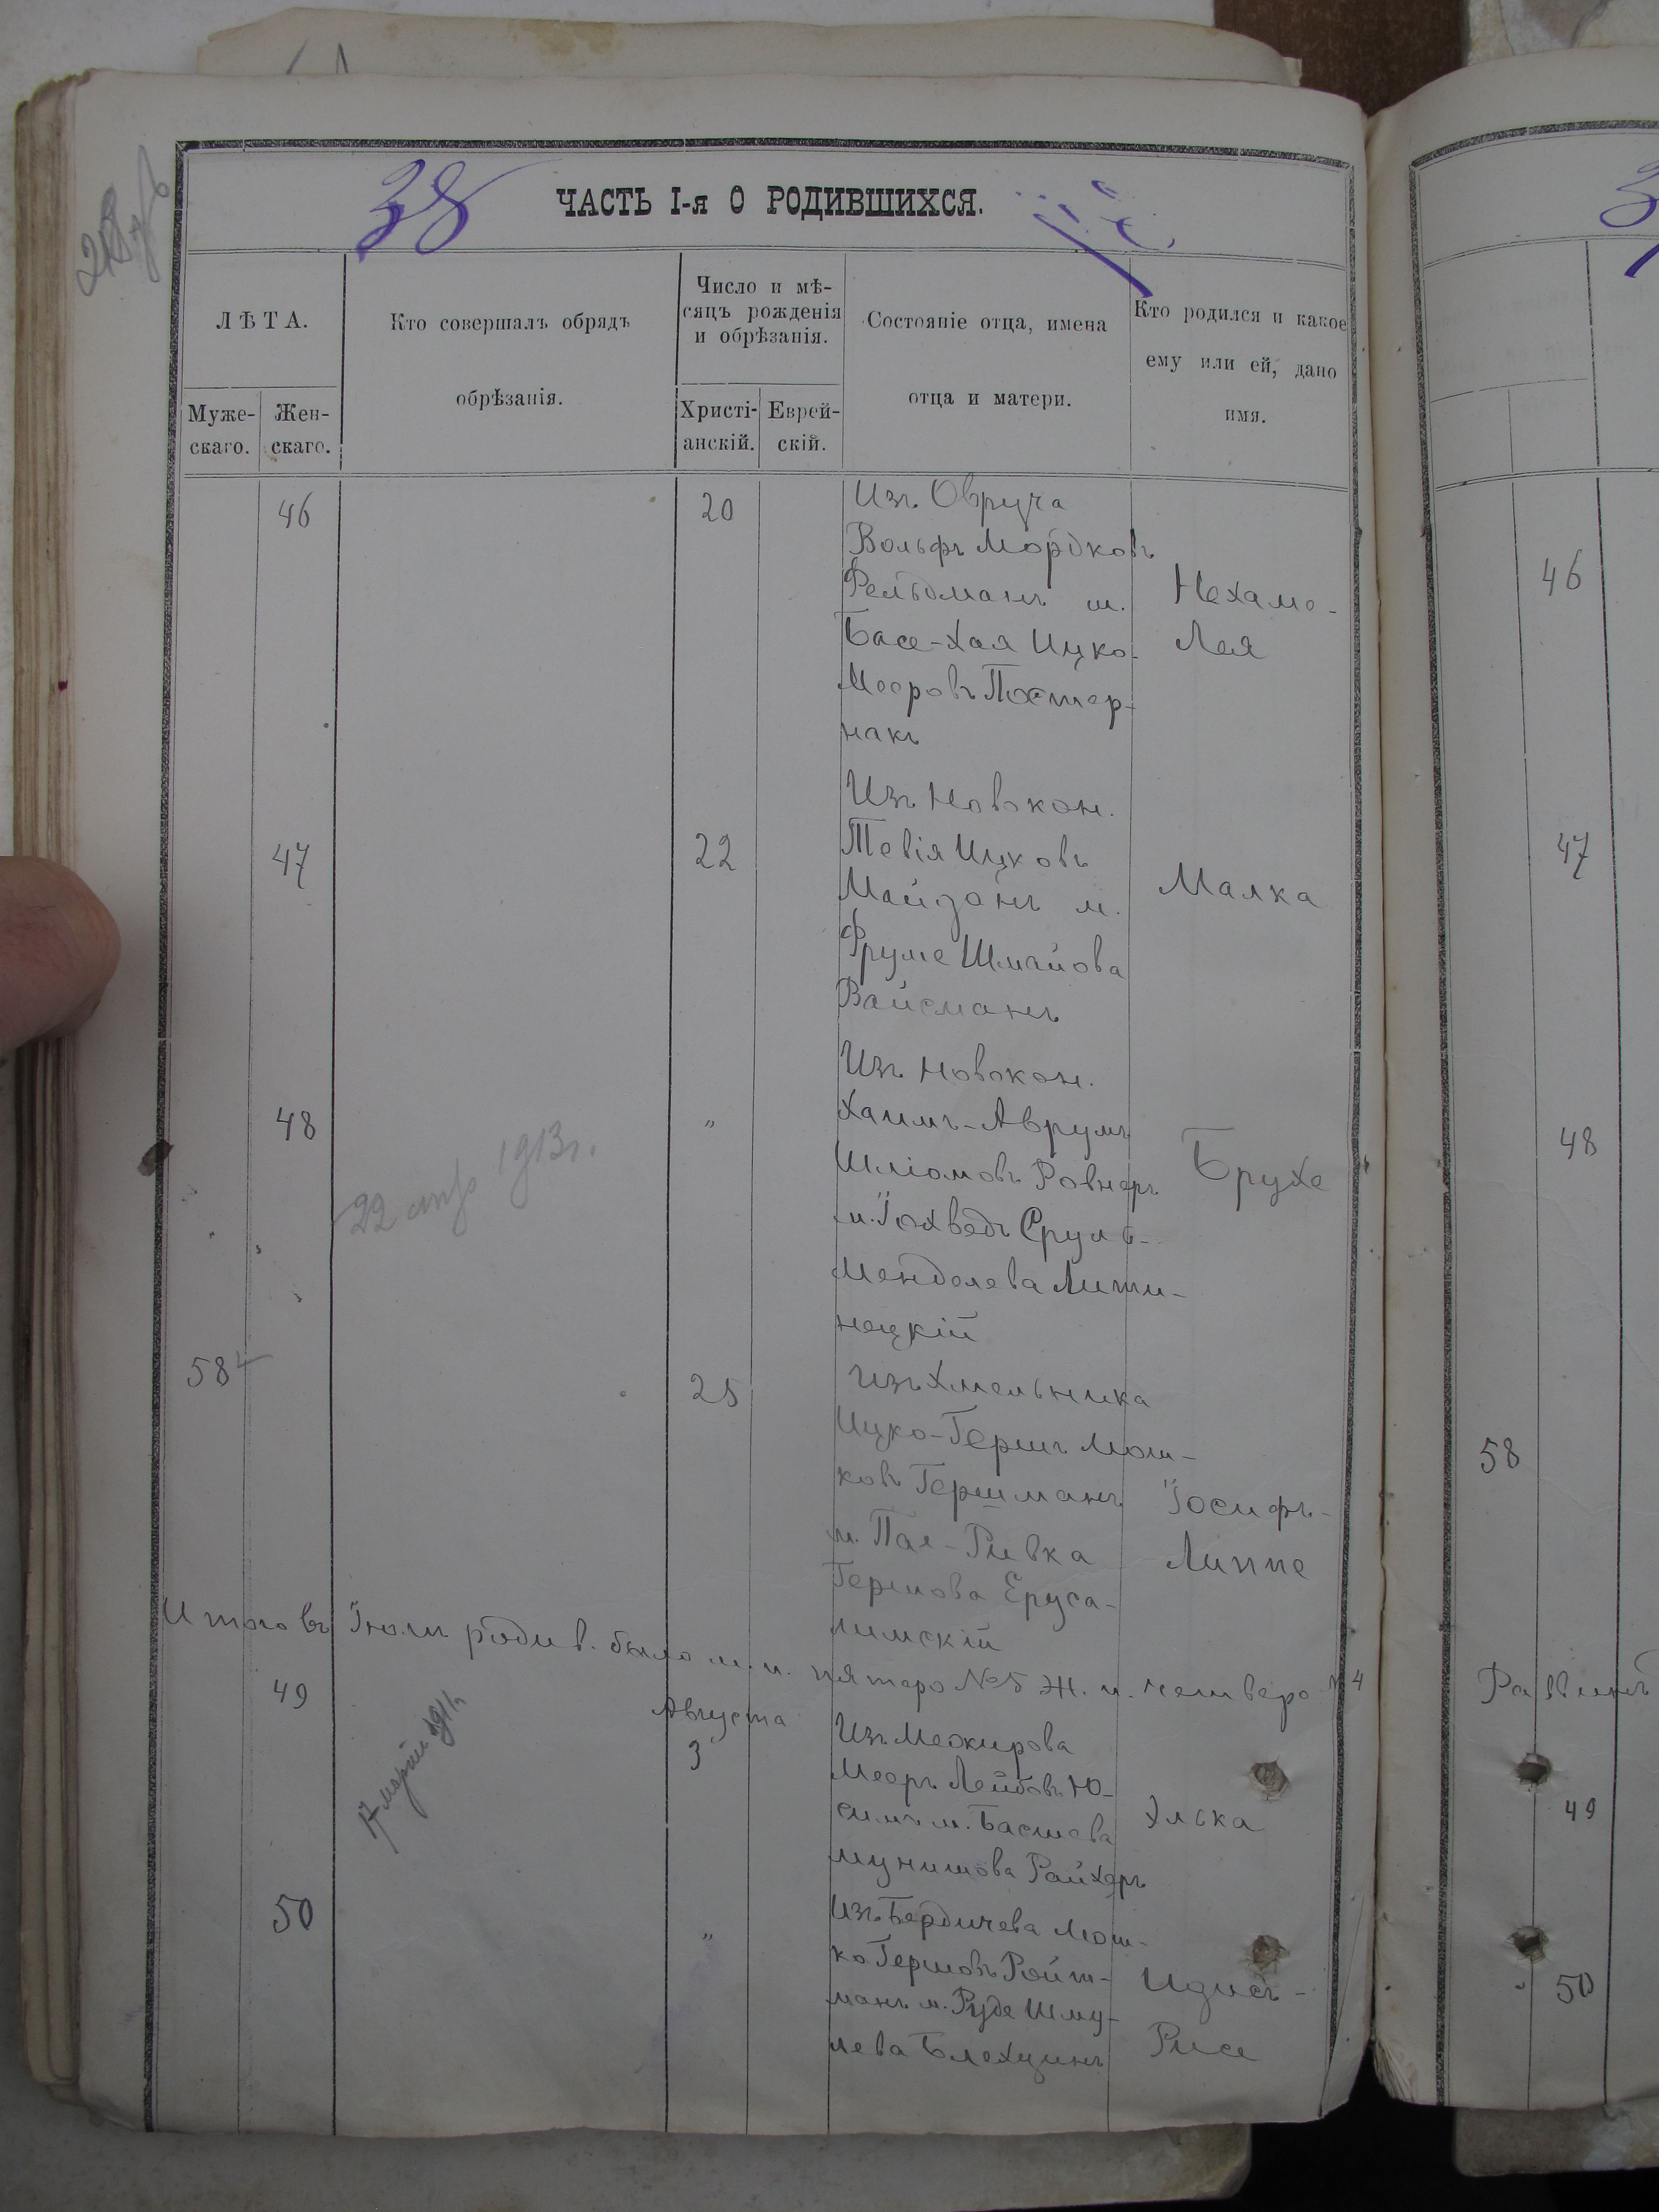 38
ЧАСТЬ I-я О РОДИВШИХСЯ.
ЛѢТА.
Муже-
скаго.
Жен-
скаго.
Кто совершалъ обрядъ
обрѣзанія.
Число и мѣ-
сяцъ рожденія
и обрѣзанія.
Христі-
анскій.
Еврей-
скій.
Состояніе отца, имена
отца и матери.
Кто родился и какое
ему или ей, дано
имя.
46
20
Изъ Овруча
Вольфъ Мордковъ
Фельдманъ м.
Басе-Хая Ицко-
Мееровъ Пастер-
накъ
Нехаме-
Лея
47
22
Изъ Новокон.
Тевія Ицковъ
Майзанъ м.
Фруме Шмайова
Вайсманъ
Малка
48
"
22 апр 1913г.
Изъ Новокон.
Хаимъ-Аврумъ
Шліомовъ Ровнеръ
м. Іохведъ Сруль-
Менделева Лити-
нецкій
Брухе
58
25
Изъ Хмельника
Ицко-Гершъ Мош-
ковъ Гершманъ
м. Пая-Ривка
Гершова Еруса-
лимскій
Іосифъ-
Липпе
Итого въ Іюлѣ родив. было м. п. пятеро №5 Ж. п. четверо №4
49
17 марта 1911г.
Августа
3
Изъ Межирова
Мееръ Лейбовъ Ю-
симъ м. Басшева
Мунишова Райхеръ
Элька
50
"
Изъ Бердичева Мош-
ко Гершовъ Ройт-
манъ м. Руде Шму-
лева Блехцинъ
Идисъ-
Рисе
46
47
48
58
Раввинъ
49
50